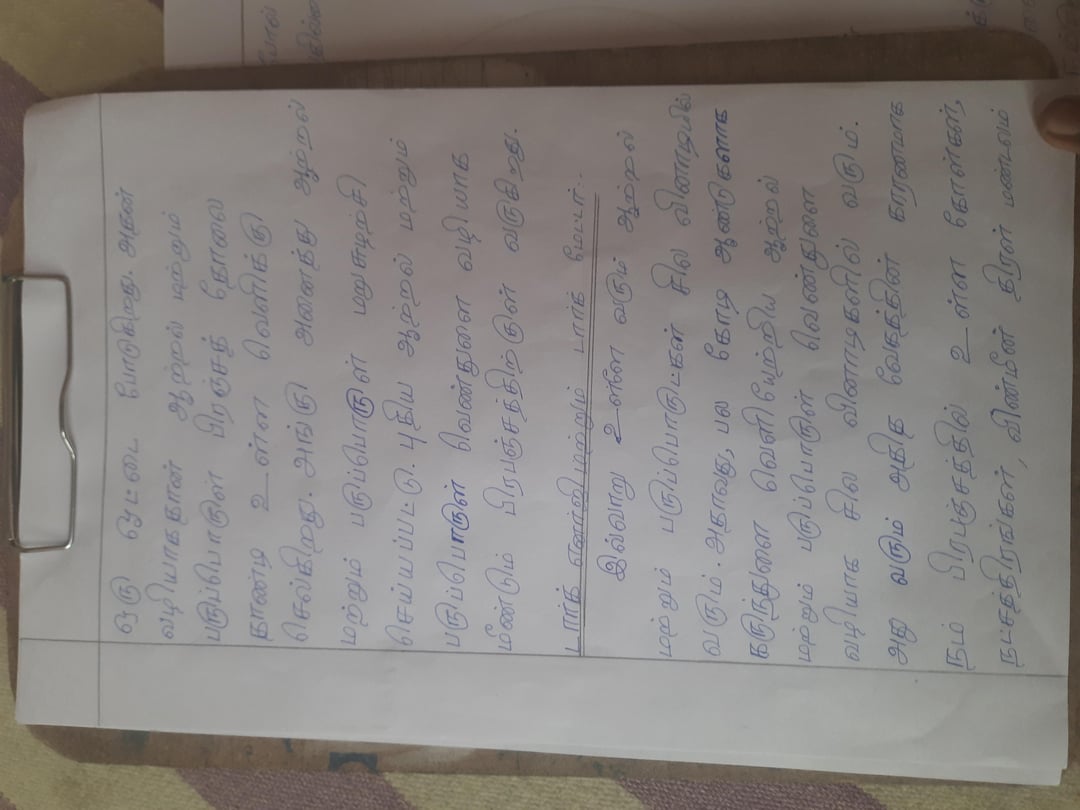 ஒரு ஓட்டை போடுகிறது. அதன்
வழியாகதான் ஆற்றல் மற்றும்
பருப்பொருள் பிரஞ்சத் தோலை
தாண்டி உள்ள வெளிக்கு
செல்கிறது. அங்கு அனைத்து ஆற்றல்
மற்றும் பருப்பொருள் மறுசுழற்சி
செய்யப்பட்டு. புதிய ஆற்றல் மற்றும்
பருப்பொருள் வெண்துளை வழியாக
மீண்டும் பிரபஞ்சத்திற்குள் வருகிறது.
டார்க் எனர்ஜி மற்றும் டார்க் மேட்டர்:-
இவ்வாறு உள்ளே வரும் ஆற்றல்
மற்றும் பருப்பொருட்கள் சில வினாடியில்
வரும். அதாவது, பல கோடி ஆண்டுகளாக
கருந்துளை வெளியேற்றிய ஆற்றல்
மற்றும் பருப்பொருள் வெண்துளை
வழியாக சில வினாடிகளில் வரும்.
அது வரும் அதித வேகத்தின் காரணமாக
நம் பிரபஞ்சத்தில் உள்ள கோள்கள்,
நட்சத்திரங்கள், விண்மீன் திரள் மண்டலம்